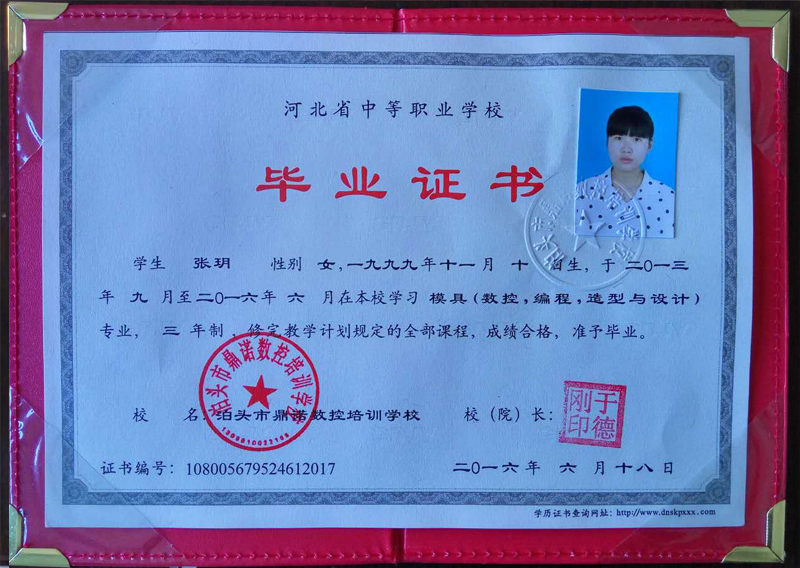 河北省中等职业学校
毕业证书
学生 张玥 性别 女,一九九九年十一月 十 日生,于 二〇一三
年 九 月至二〇一六年 六 月在本校学习 模具(数控,编程,造型与设计)
专业, 三 年制,修完教学计划规定的全部课程,成绩合格,准予毕业。
泊头市鼎诺数控培训学校
校 名:泊头市鼎诺数控培训学校 校(院)长:
于德刚印
证书编号:108005679524612017 二〇一六年 六 月十八日
学历证书查询网址:http://www.dnskpxxx.com